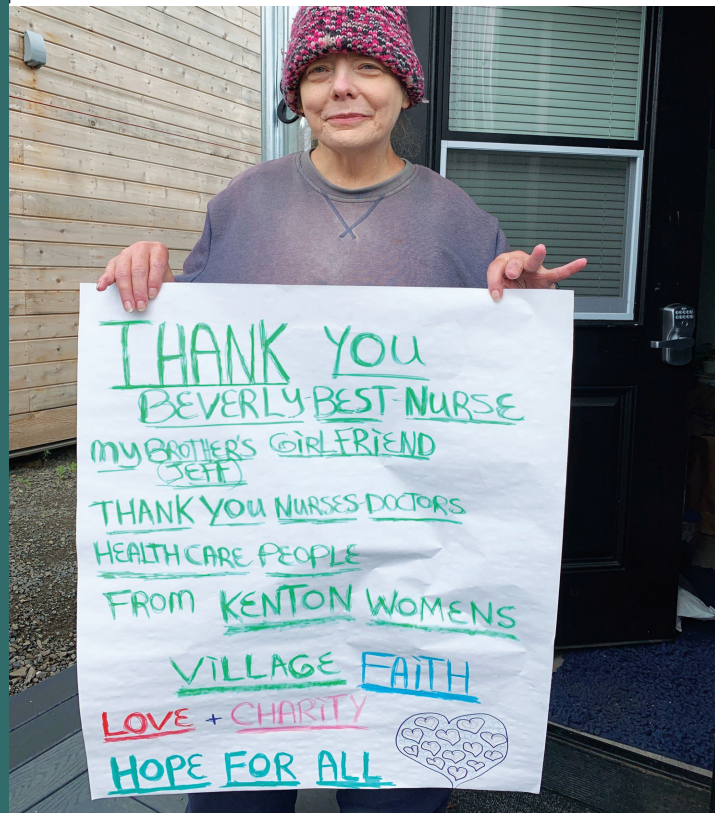 THANK YOU
BEVERLY-BEST-NURSE
my BROTHER'S GIRLFRIEND
(JEFF)
THANK YOU NURSES-DOCTORS
HEALTH CARE PEOPLE
FROM KENTON WOMENS
VILLAGE FAITH
LOVE + CHARITY
HOPE FOR ALL